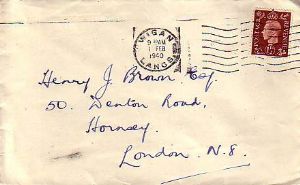 WIGAN
9 15 AM
1 FEB
1940
LANCS
Henry J. Brown Esq.
50. Denton Road,
Hornsey.
London. N.8.